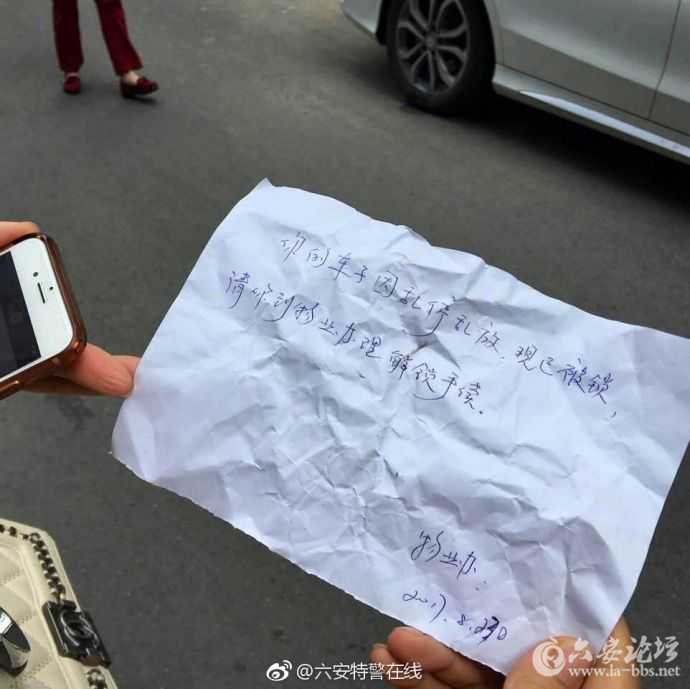 你的车子因乱停乱放、现已被锁,
请你到物业办理解锁手续.
物业办:
@六安特警在线
六安论坛
www.la-bbs.net